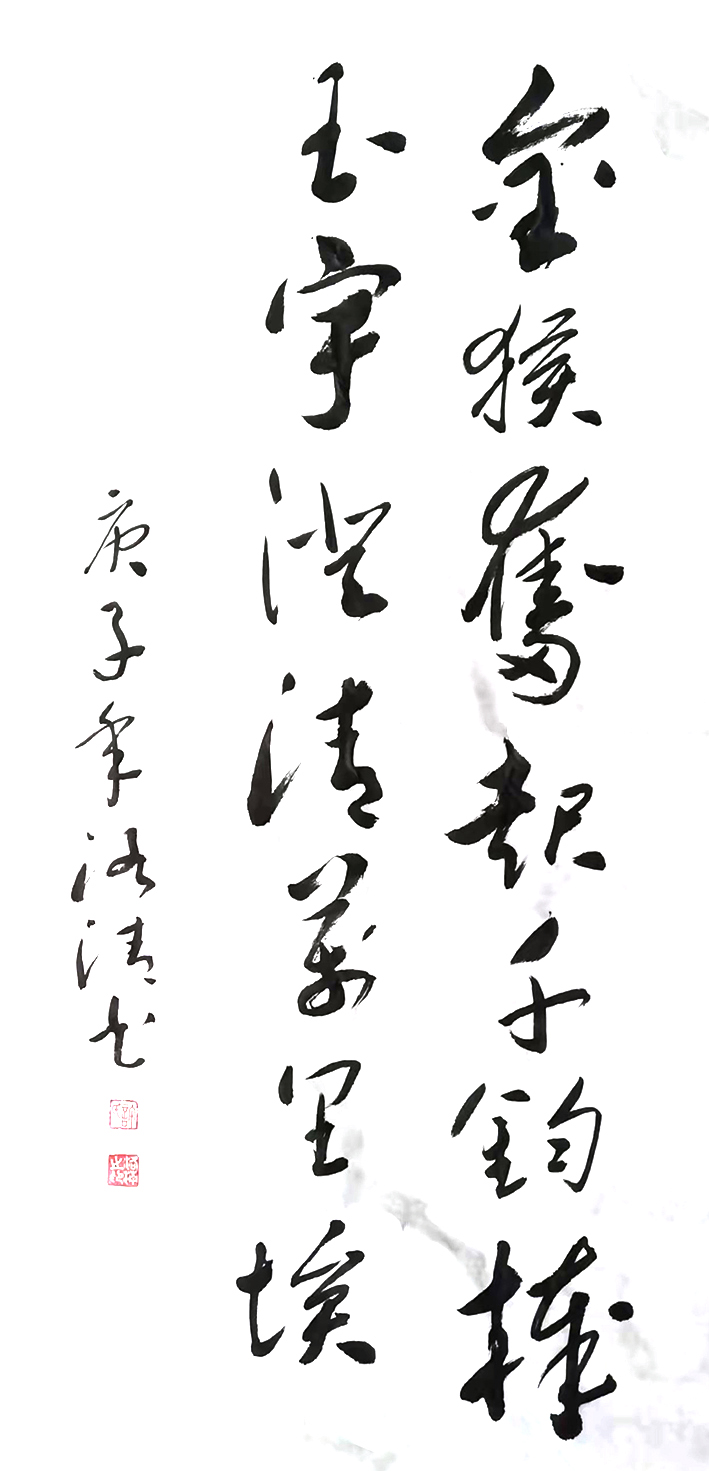 金猴奮起千鈞棒
玉宇澄清萬里埃
庚子年清书